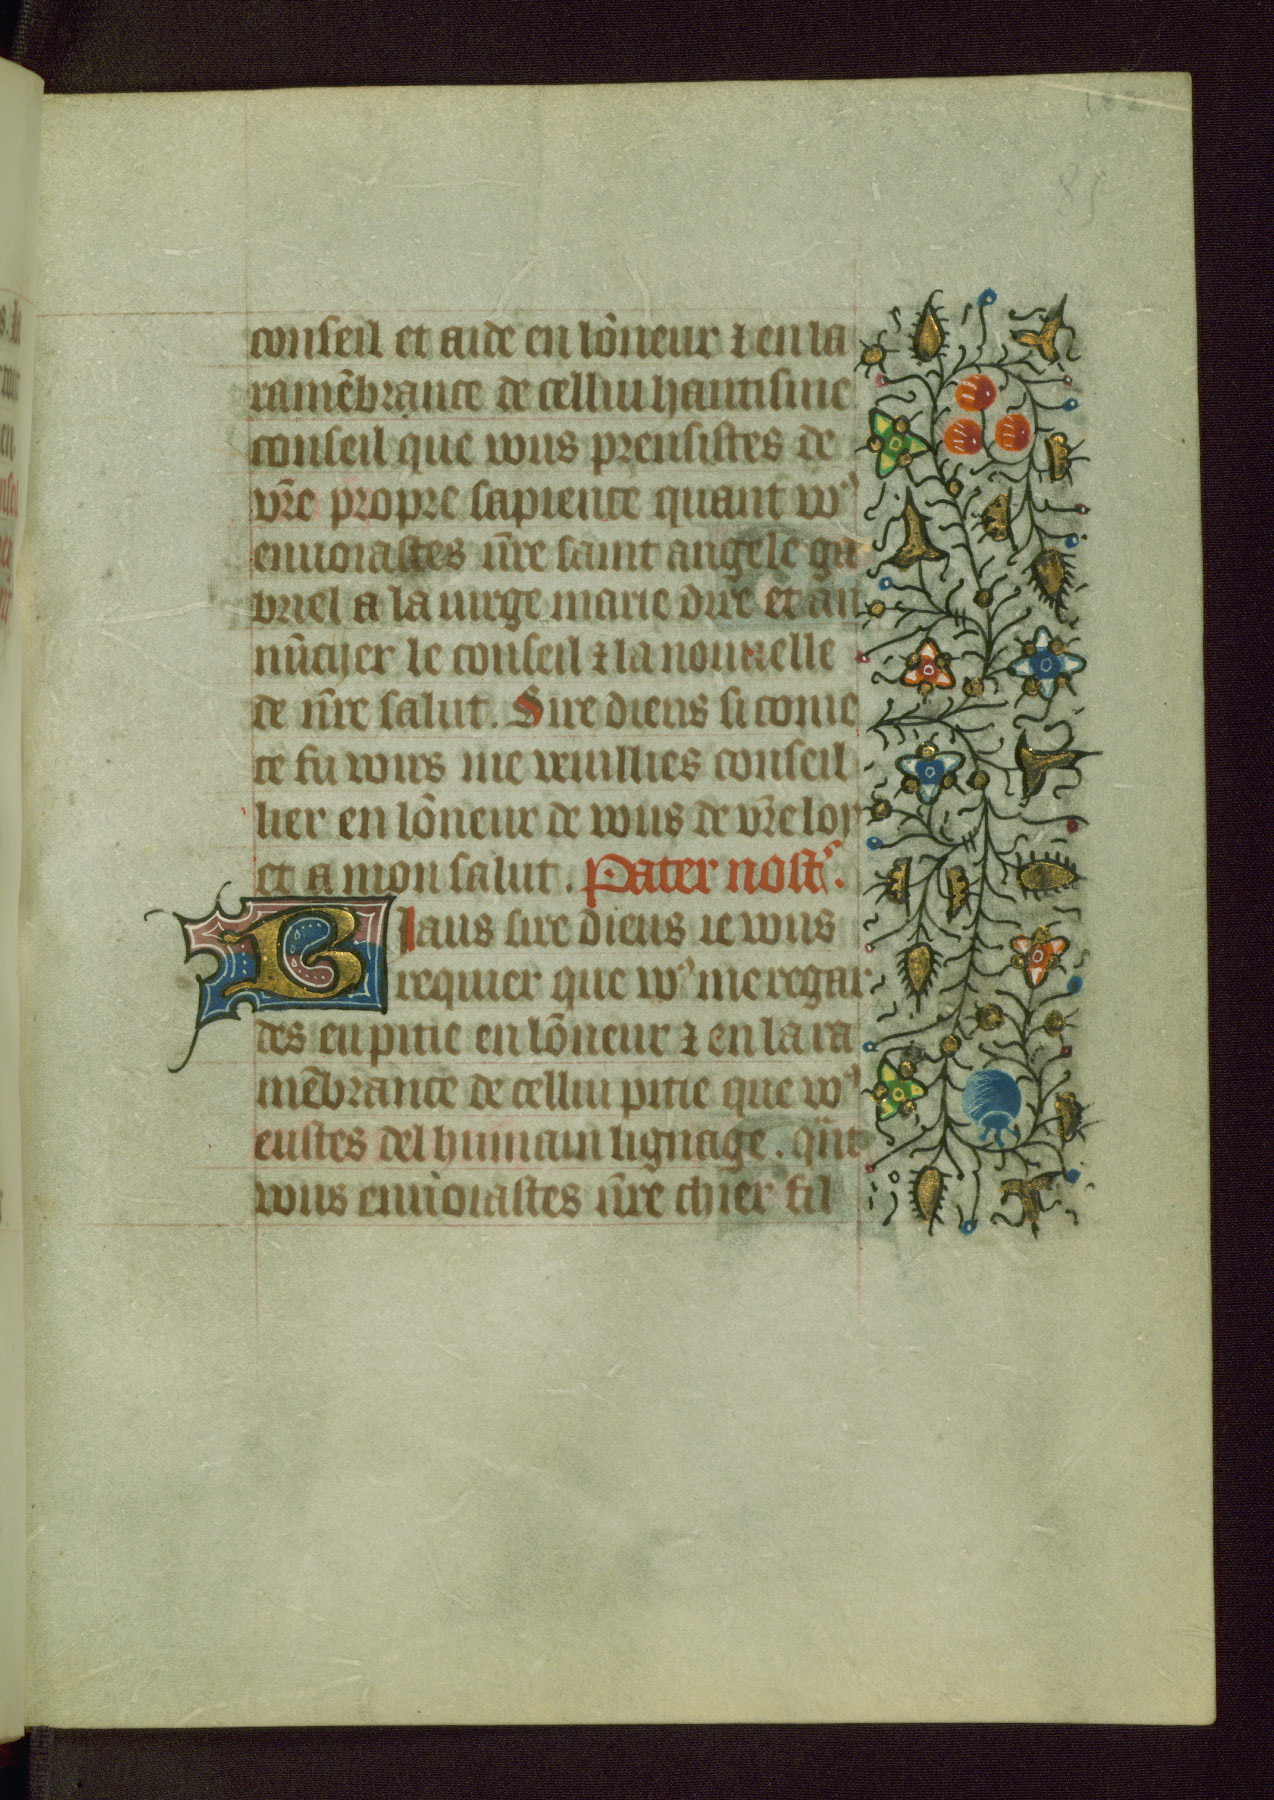 conseil et aide en lōneur ⁊ en la
ramēbrance de celluy hautisme
conseil que vous prensistes de
vr̄e propre sapience quant voꝰ
enuoiastes nr̄e saint angele ga
briel a la uirge marie dire et an
nūcher le conseil ⁊ la nouuelle
de nr̄e salut. Sire dieus si come
ce fu vous me veuillies conseil
lier en lōneur de vous de vr̄e loy
et a mon salut. Pater nost̄.
Biaus sire dieus ie vous
requier que voꝰ me regar
des en pitie en lōneur ⁊ en la ra
mēbrance de celluy pitie que voꝰ
eustes del humain lignage. qūt
vous enuoiastes nr̄e chier fil
85